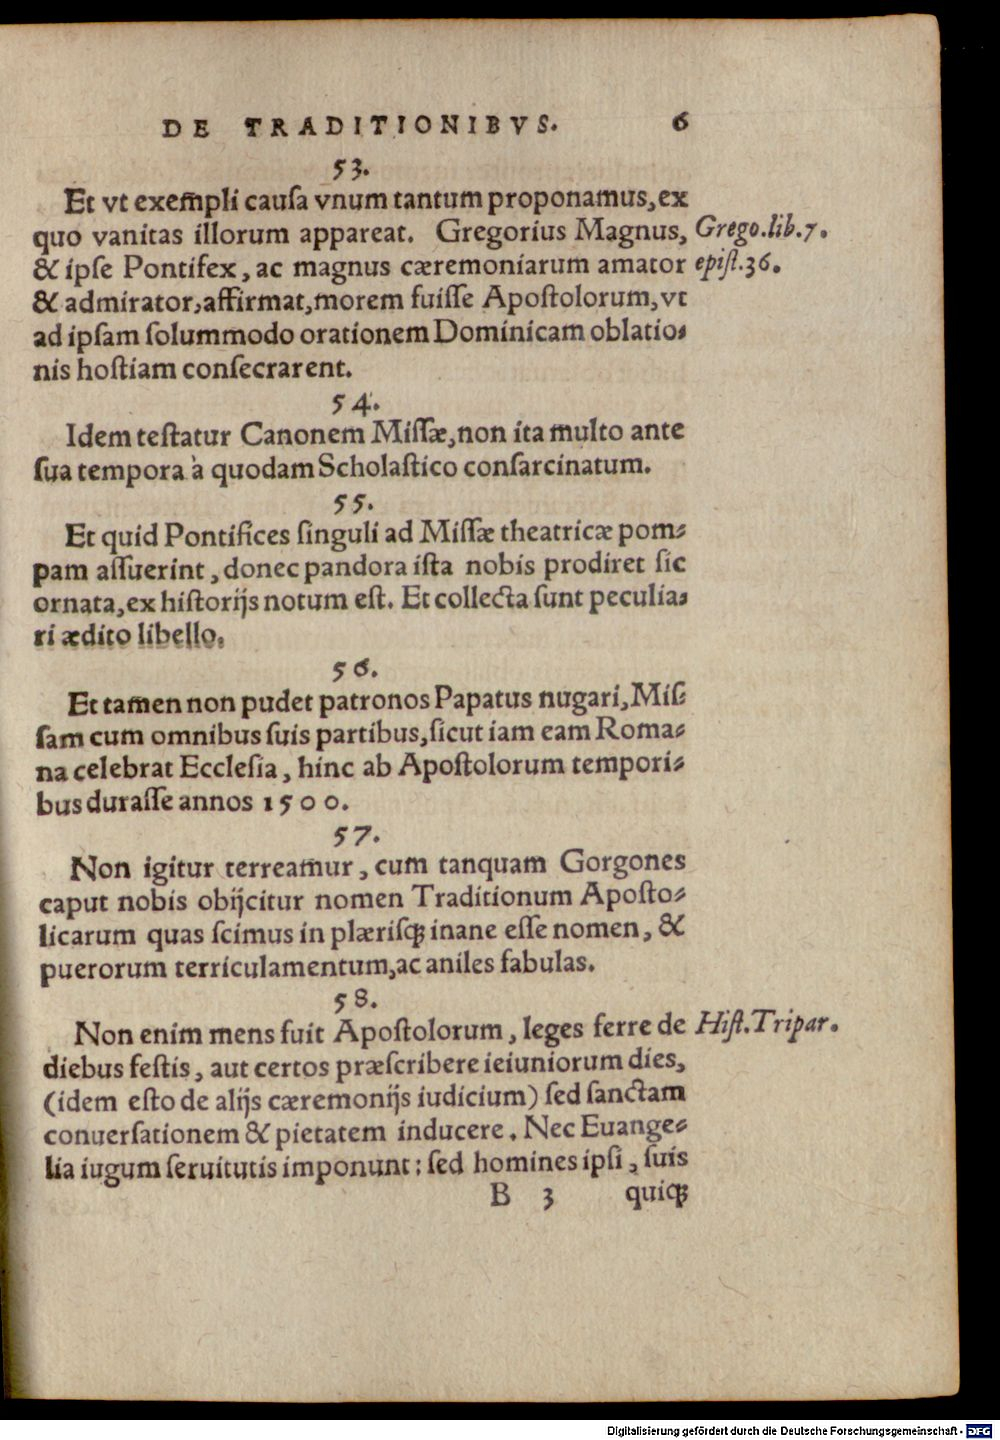 DE TRADITIONIBVS. 6
53.
Et vt exem̃pli cauſa vnum tantum proponamus, ex
quo vanitas illorum appareat. Gregorius Magnus, Grego.lib.7.
& ipſe Pontifex, ac magnus cæremoniarum amator epiſt.36.
& admirator, affirmat, morem fuiſſe Apoſtolorum, vt
ad ipſam ſolummodo orationem Dominicam oblatio-
nis hoſtiam conſecrarent.
54.
Idem teſtatur Canonem Miſſæ, non ita multo ante
ſua tempora à quodam Scholaſtico conſarcinatum.
55.
Et quid Pontifices ſinguli ad Miſſæ theatricæ pom-
pam aſſuerint, donec pandora iſta nobis prodiret ſic
ornata, ex hiſtorijs notum eſt. Et collecta ſunt peculia-
ri ædito libello.
56.
Et tam̃en non pudet patronos Papatus nugari, Miſ-
ſam cum omnibus ſuis partibus, ſicut iam eam Roma-
na celebrat Eccleſia, hinc ab Apoſtolorum tempori-
bus duraſſe annos 1500.
57.
Non igitur terream̃ur, cum tanquam Gorgones
caput nobis obijcitur nomen Traditionum Apoſto-
licarum quas ſcimus in plæriſq; inane eſſe nomen, &
puerorum terriculamentum, ac aniles fabulas.
58.
Non enim mens fuit Apoſtolorum, leges ferre de Hiſt.Tripar.
diebus feſtis, aut certos præſcribere ieiuniorum dies,
(idem eſto de alijs cæremonijs iudicium) ſed ſanctam
conuerſationem & pietatem inducere. Nec Euange-
lia iugum ſeruitutis imponunt: ſed homines ipſi, ſuis
B 3 quiq;
Digitalisierung gefördert durch die Deutsche Forschungsgemeinschaft - DFG